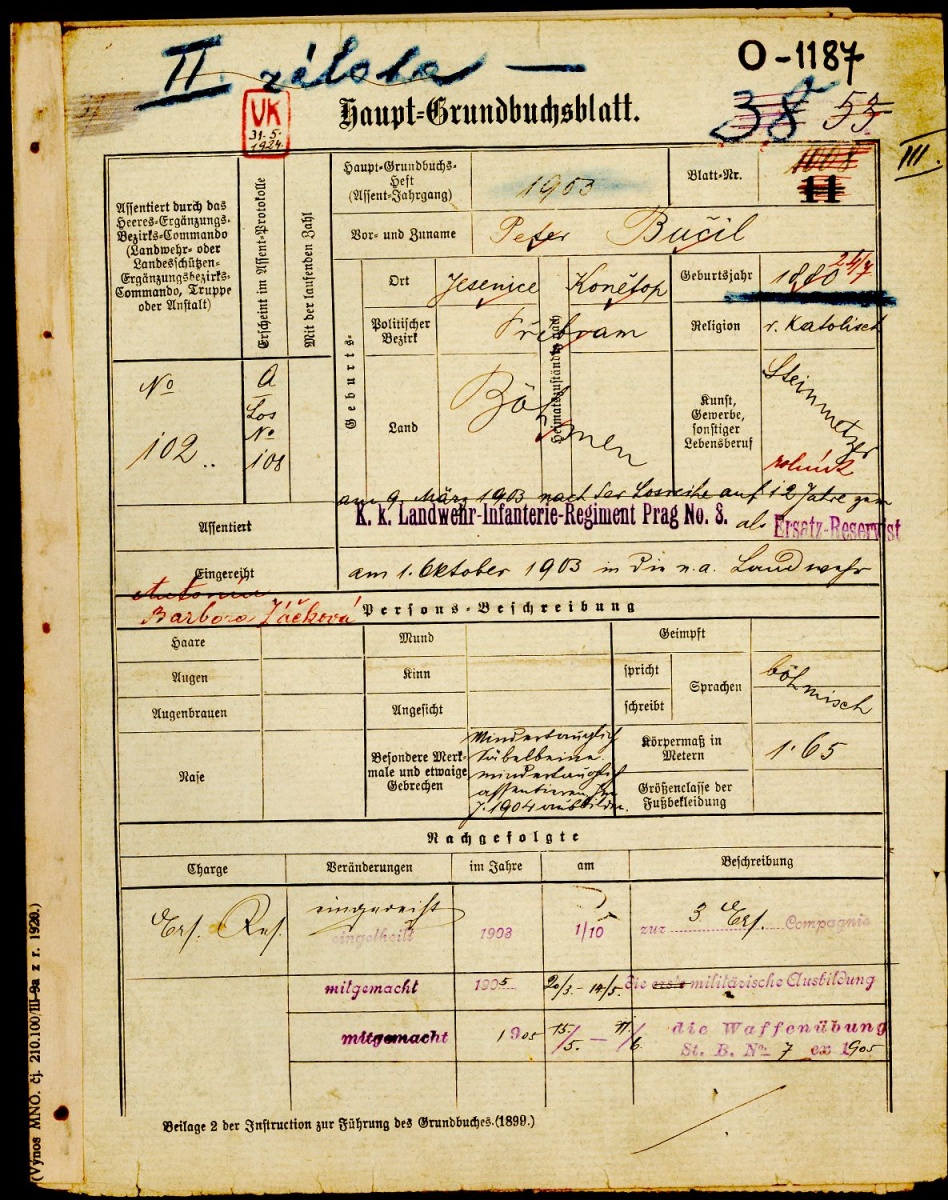 II záloha —
O-1187
VK
31.5.
1924.
Haupt-Grundbuchsblatt.
38 53
III.
Assentiert durch das
Heeres-Ergänzungs-
Bezirks-Commando
(Landwehr- oder
Landesschützen-
Ergänzungsbezirks-
Commando, Truppe
oder Anstalt)
Erscheint im Assent-Protokolle
Mit der laufenden Zahl
Haupt-Grundbuchs-
Heft
(Assent-Jahrgang)
1903
Blatt-Nr.
11
Vor- und Zuname
Peter Bučil
Geburts-
Ort
Jesenice
Heimatszuständig nach
Konětop
Geburtsjahr
1880 24/7
Politischer
Bezirk
Přibram
Religion
r. Katolisch
Land
Böhmen
Kunst,
Gewerbe,
sonstiger
Lebensberuf
Steinmetzer
rolník
No
102..
A
Los
No
108
Assentiert
am 9. März 1903 nach der Losreihe auf 12 Jahre zum
K. k. Landwehr-Infanterie-Regiment Prag No. 8. als Ersatz-Reservist
Eingereiht
am 1. Oktober 1903 in die n.a. Landwehr
Antonín
Barbora Žáčková
Persons-Beschreibung
Haare
Mund
Geimpft
Augen
Kinn
spricht
Sprachen
böhmisch
Augenbrauen
Angesicht
schreibt
Nase
Besondere Merk-
male und etwaige
Gebrechen
Mindertauglich
Säbelbeine.
mindertauglich
assentieren. Im
J. 1904 ausbilden.
Körpermaß in
Metern
1·65
Größenclasse der
Fußbekleidung
Nachgefolgte
Charge
Veränderungen
im Jahre
am
Beschreibung
Ers. Res.
eingereiht
eingetheilt 1903 1/10 zur 3 Ers. Compagnie
mitgemacht 1905 20/3. - 14/5. die erste militärische Ausbildung
mitgemacht 1905 15/5. — 11/6. die Waffenübung
St. B. No. 7 ex 1905
Beilage 2 der Instruction zur Führung des Grundbuches. (1899.)
(Výnos MNO. čj. 210.100/III-9a z r. 1920.)